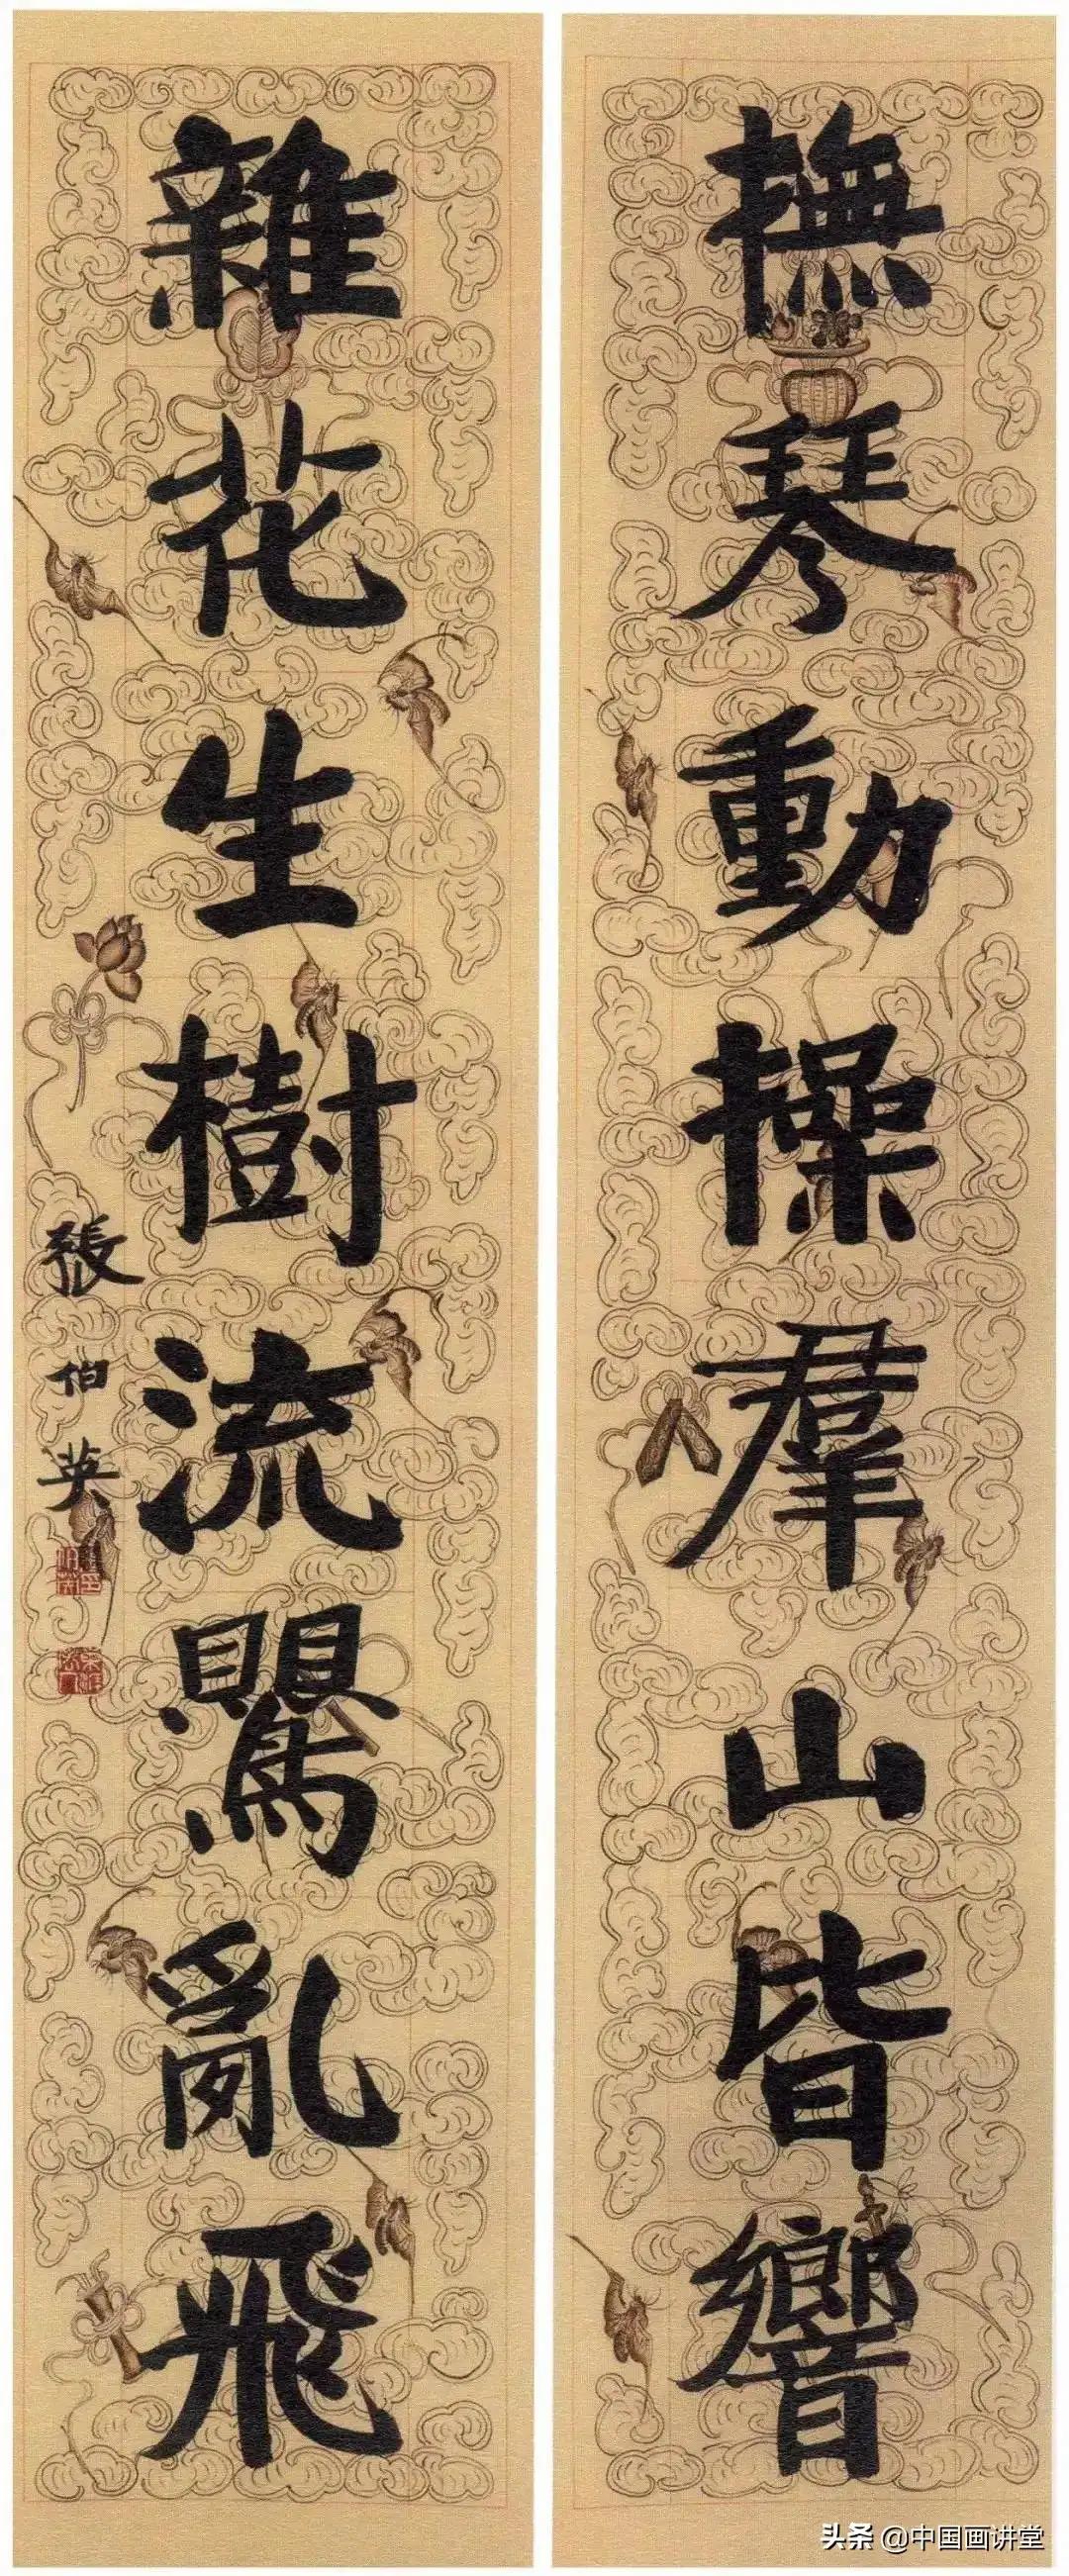 撫琴動操羣山皆響
雜花生樹流鸎亂飛
張伯英
头条 @中国画讲堂